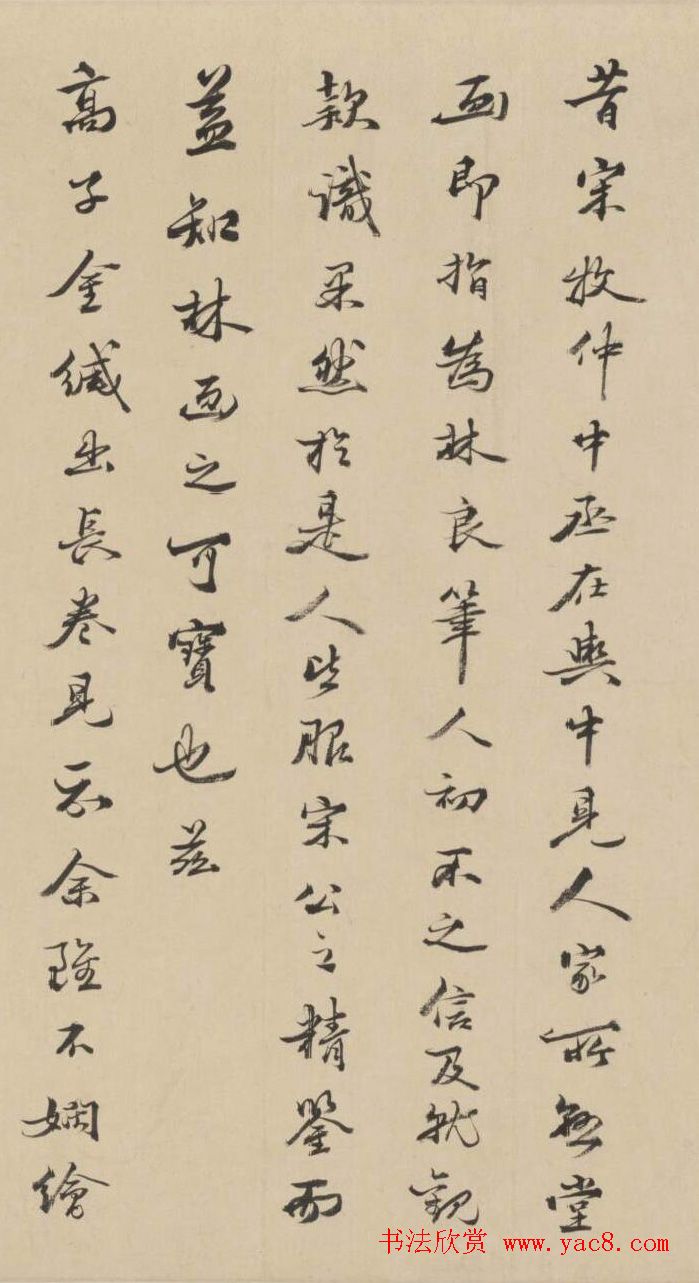 昔宋牧仲中丞在輿中見人家所懸堂
画即指為林良筆人初不之信及就觀
款識果然於是人皆服宋公之精鑒而
益知林画之可寶也茲
高子金緘出長卷見示余雖不嫻繪
书法欣赏 www.yac8.com